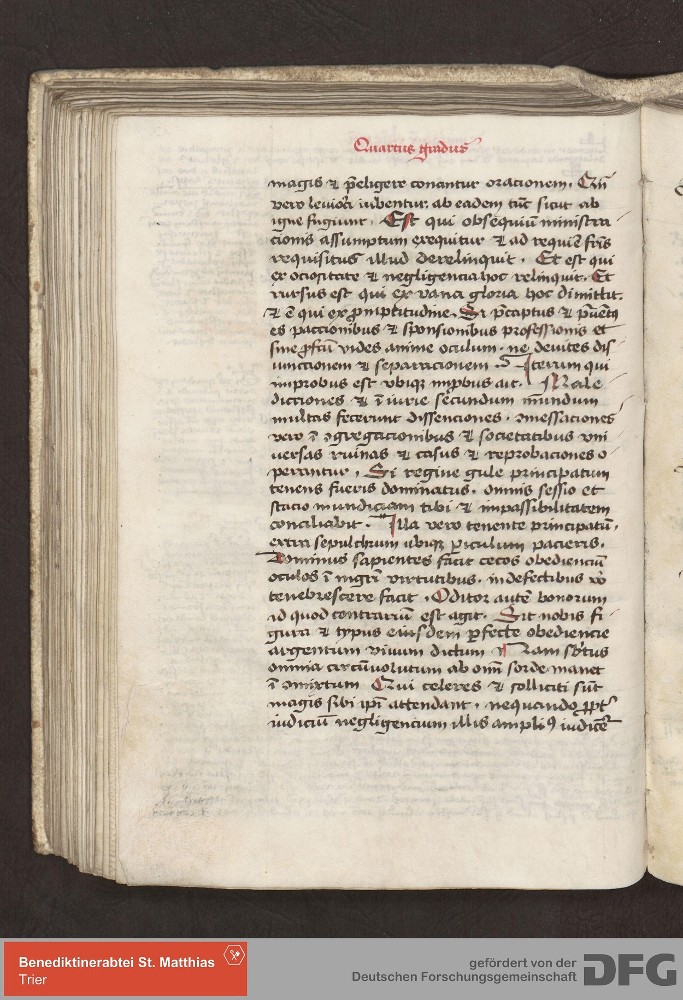 Quartus gradus
magis et p̄eligere conantur oracionem. Cū
vero leuiora iubentur. ab eadem tūc sicut ab
igne fugiunt. Est qui obsequiū ministra
cionis assumptum exequitur et ad requiē fr̄is
requisitus illud derelinquit. Et est qui
ex ociositate et negligencia hoc relinquit. Et
rursus est qui ex vana gloria hoc dimittit.
et ē qui ex promptitudine. Si p̄captus et
es paccionibus et sponsionibus professionis et
sine profcū vides anime oculum. ne deuites dis
iunctionem et separacionem. Iterum qui
improbus est vbiqꝫ improbus ait. Male
dictiones et iniurie secundum mundum
multas fecerunt dissenciones. ꝯmessaciones
vero ī ꝯgregacionibus et societatibus vni
uersas ruinas et casus et reprobaciones o
perantur. Si regine gule principatum
tenens fueris dominatus. omnis sessio et
stacio mundiciam tibi et impassibilitatem
conciliabit. Illa vero tenente principatū.
extra sepulchrum ubiqꝫ periculum pacieris.
Dominus sapientes facit cecos obedienciū
oculos ī mgrī virtutibus. in defectibus vo
tenebrescere facit. Oditor autē bonorum
id quod contrariū est agit. Sit nobis fi
gura et typus eiusdem perfecte obediencie
argentum viuum dictum Nam sbtus
omnia circūuolutum ab omī sorde manet
ī ꝯmixtum Qui celeres et solliciti sūt
magis sibi ipī attendant. nequando ppt
iudiciū negligencium illis amplius iudicē
Benediktinerabtei St. Matthias
Trier
gefördert von der
Deutschen Forschungsgemeinschaft
DFG